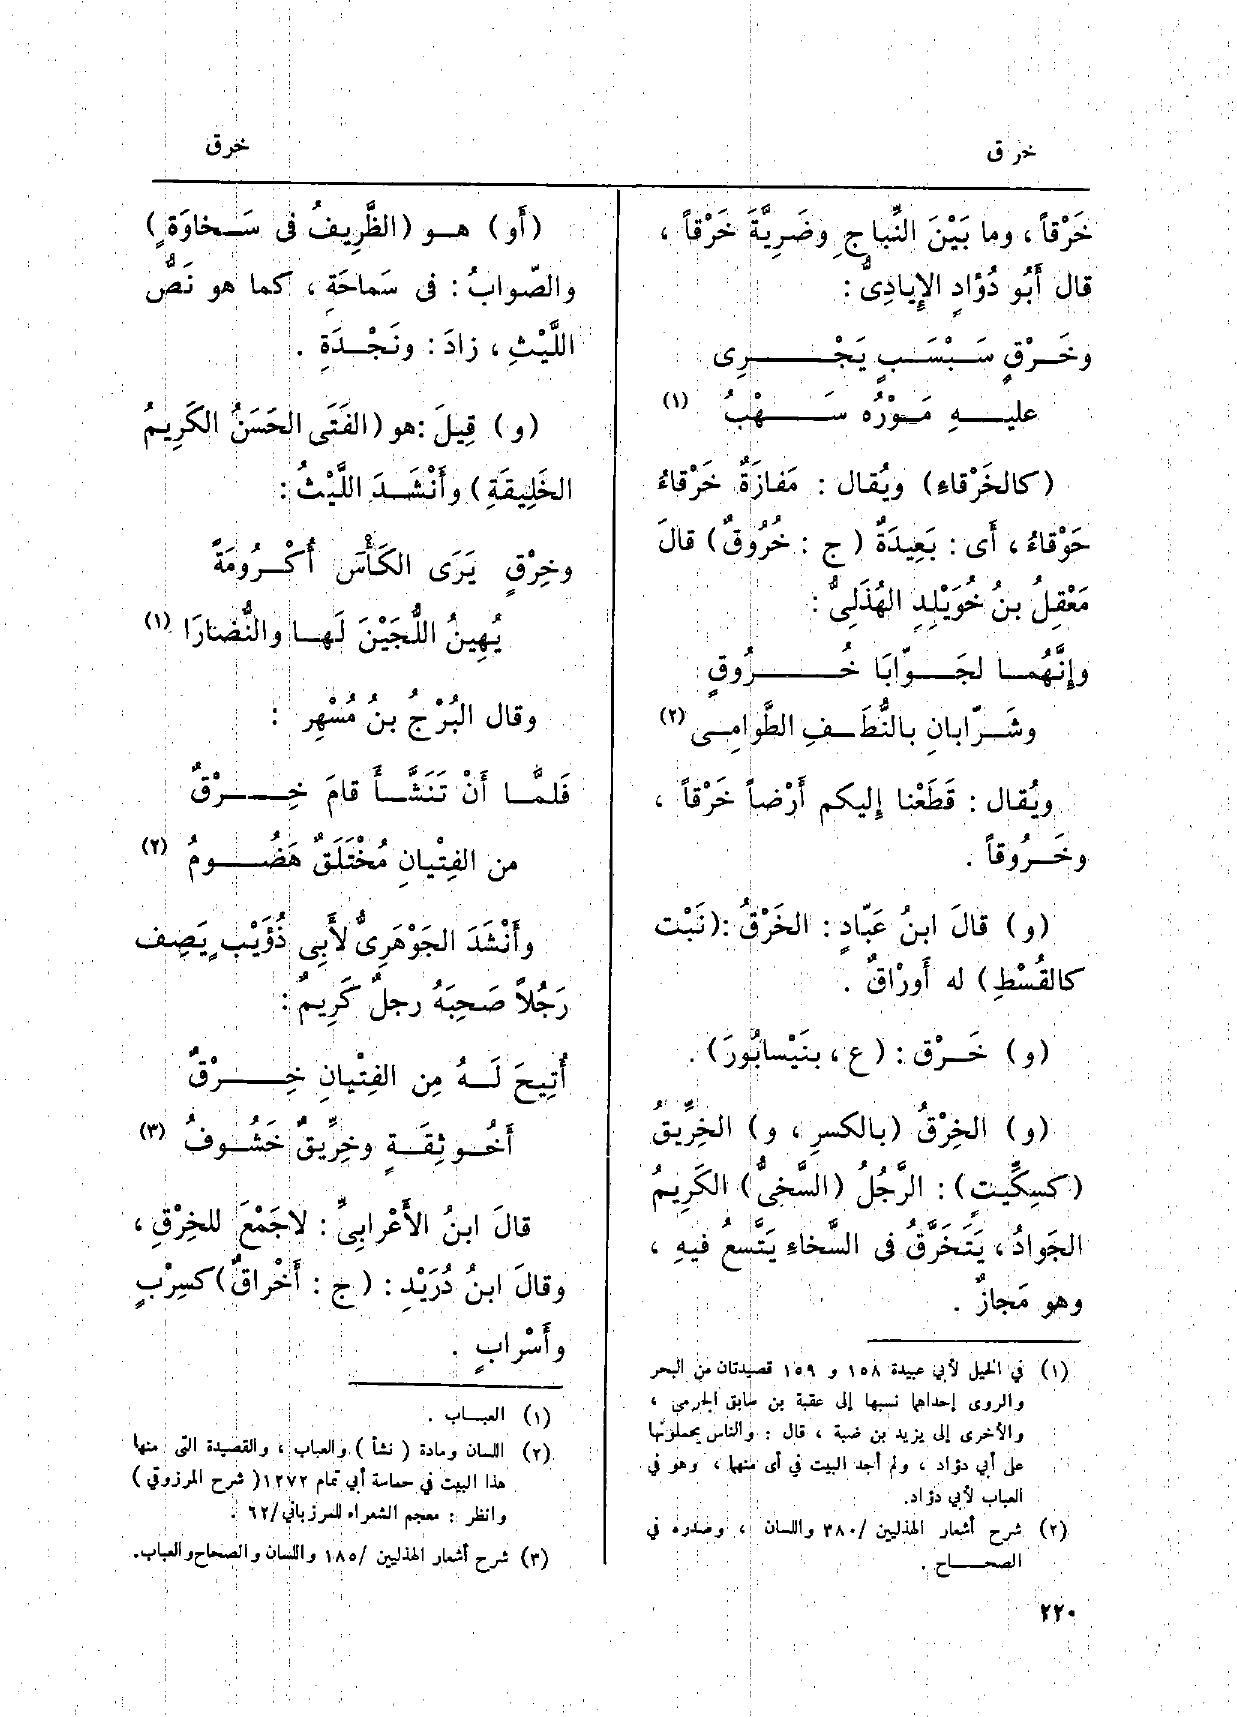 خرق
خرق
خَرْقاً ، وما بَيْنَ النِّباجِ وضَرِيَّةَ خَرْقاً ،
قال أَبُو دُؤادٍ الإِيادِىُّ :
وخَــرْقٍ سَـبْسَـبٍ يَجْــــــرِى
عليــهِ مَـوْرُه سَــــهْبُ (١)
(كالخَرْقاءِ) ويُقال : مَفازَةٌ خَرْقاءُ
خَوْقاءُ ، أَى : بَعِيدَةٌ (ج : خُرُوقٌ) قالَ
مَعْقِلُ بنُ خُوَيْلِدٍ الهُذَلِىُّ :
وإِنَّهُمــا لَجَــوّابَا خُـــــرُوقٍ
وشَــرّابانِ بالنُّطَـفِ الطَّوامِـى (٢)
ويُقـال : قَطَعْنا إِليكم أَرْضاً خَرْقاً ،
وخَــرُوقاً .
(و) قالَ ابنُ عَبّادٍ : الخَرْقُ :(نَبْت
كالقُسْطِ) له أَوراقٌ .
(و) خَــرْق : (ع ، بنَيْسابُورَ) .
(و) الخِرْقُ (بالكسرِ ، و) الخِرِّيقُ
(كسِكِّيتٍ) : الرَّجُلُ (السَّخِىُّ) الكَرِيمُ
الجَوادُ ، يَتَخَرَّقُ فى السَّخاءِ يَتَّسعُ فيهِ ،
وهو مَجازٌ .
(١) في الخيل لأبي عبيدة ١٥٨ و ١٥٩ قصيدتان من البحر
والروى إحداهما نسبها إلى عقبة بن سابق الجرمي ،
والأخرى إلى يزيد بن ضبة ، قال : والناس يحملونها
على أبي دؤاد ، ولم أجد البيت في أى منهما ، وهو في
العباب لأبي دؤاد.
(٢) شرح أشعار الهذليين /٣٨٠ واللسان ، وصدره في
الصحــاح .
(أَو) هــو (الظَّرِيفُ فى سَـخاوَةٍ)
والصّوابُ : فى سَماحَةٍ ، كما هو نَصُّ
اللَّيْثِ ، زادَ : ونَجْـدَةِ .
(و) قِيلَ :هو (الفَتَى الحَسَنُ الكَرِيمُ
الخَلِيقَةِ) وأَنْشَـدَ اللَّيْثُ :
وخِرْقٍ يَرَى الكَأْسَ أُكْـرُومَةً
يُهِينُ اللُّجَيْنَ لَهـا والنُّضارَا (١)
وقال البُرْجُ بنُ مُسْهِر :
فَلمّـا أَنْ تَنَشَّـأَ قامَ خِــرْقٌ
من الفِتْيانِ مُخْتَلَقٌ هَضُــومُ (٢)
وأَنْشَدَ الجَوْهَرِىُّ لأَبِى ذُؤَيْبٍ يَصِف
رَجُلاً صَحِبَهُ رجلٌ كَرِيمٌ :
أُتِيحَ لَــهُ مِن الفِتْيانِ خِــــرْقٌ
أَخُـو ثِقَـةٍ وخِرِّيقٌ خَشُـوفُ (٣)
قالَ ابنُ الأَعْرابِىِّ : لاجَمْعَ للخِرْقِ ،
وقالَ ابنُ دُرَيْدٍ : (ج : أَخْراقٌ) كسِرْبٍ
وأَسْرابٍ .
(١) العبـاب .
(٢) اللسان ومادة ( نشأ ) والعباب ، والقصيدة التى منها
هذا البيت في حماسة أبي تمام ١٢٧٢( شرح المرزوقي )
وانظر : معجم الشعراء للمرزباني/٦٢ .
(٣) شرح أشعار الهذليين /١٨٥ واللسان والصحاح والعباب.
٢٢٠